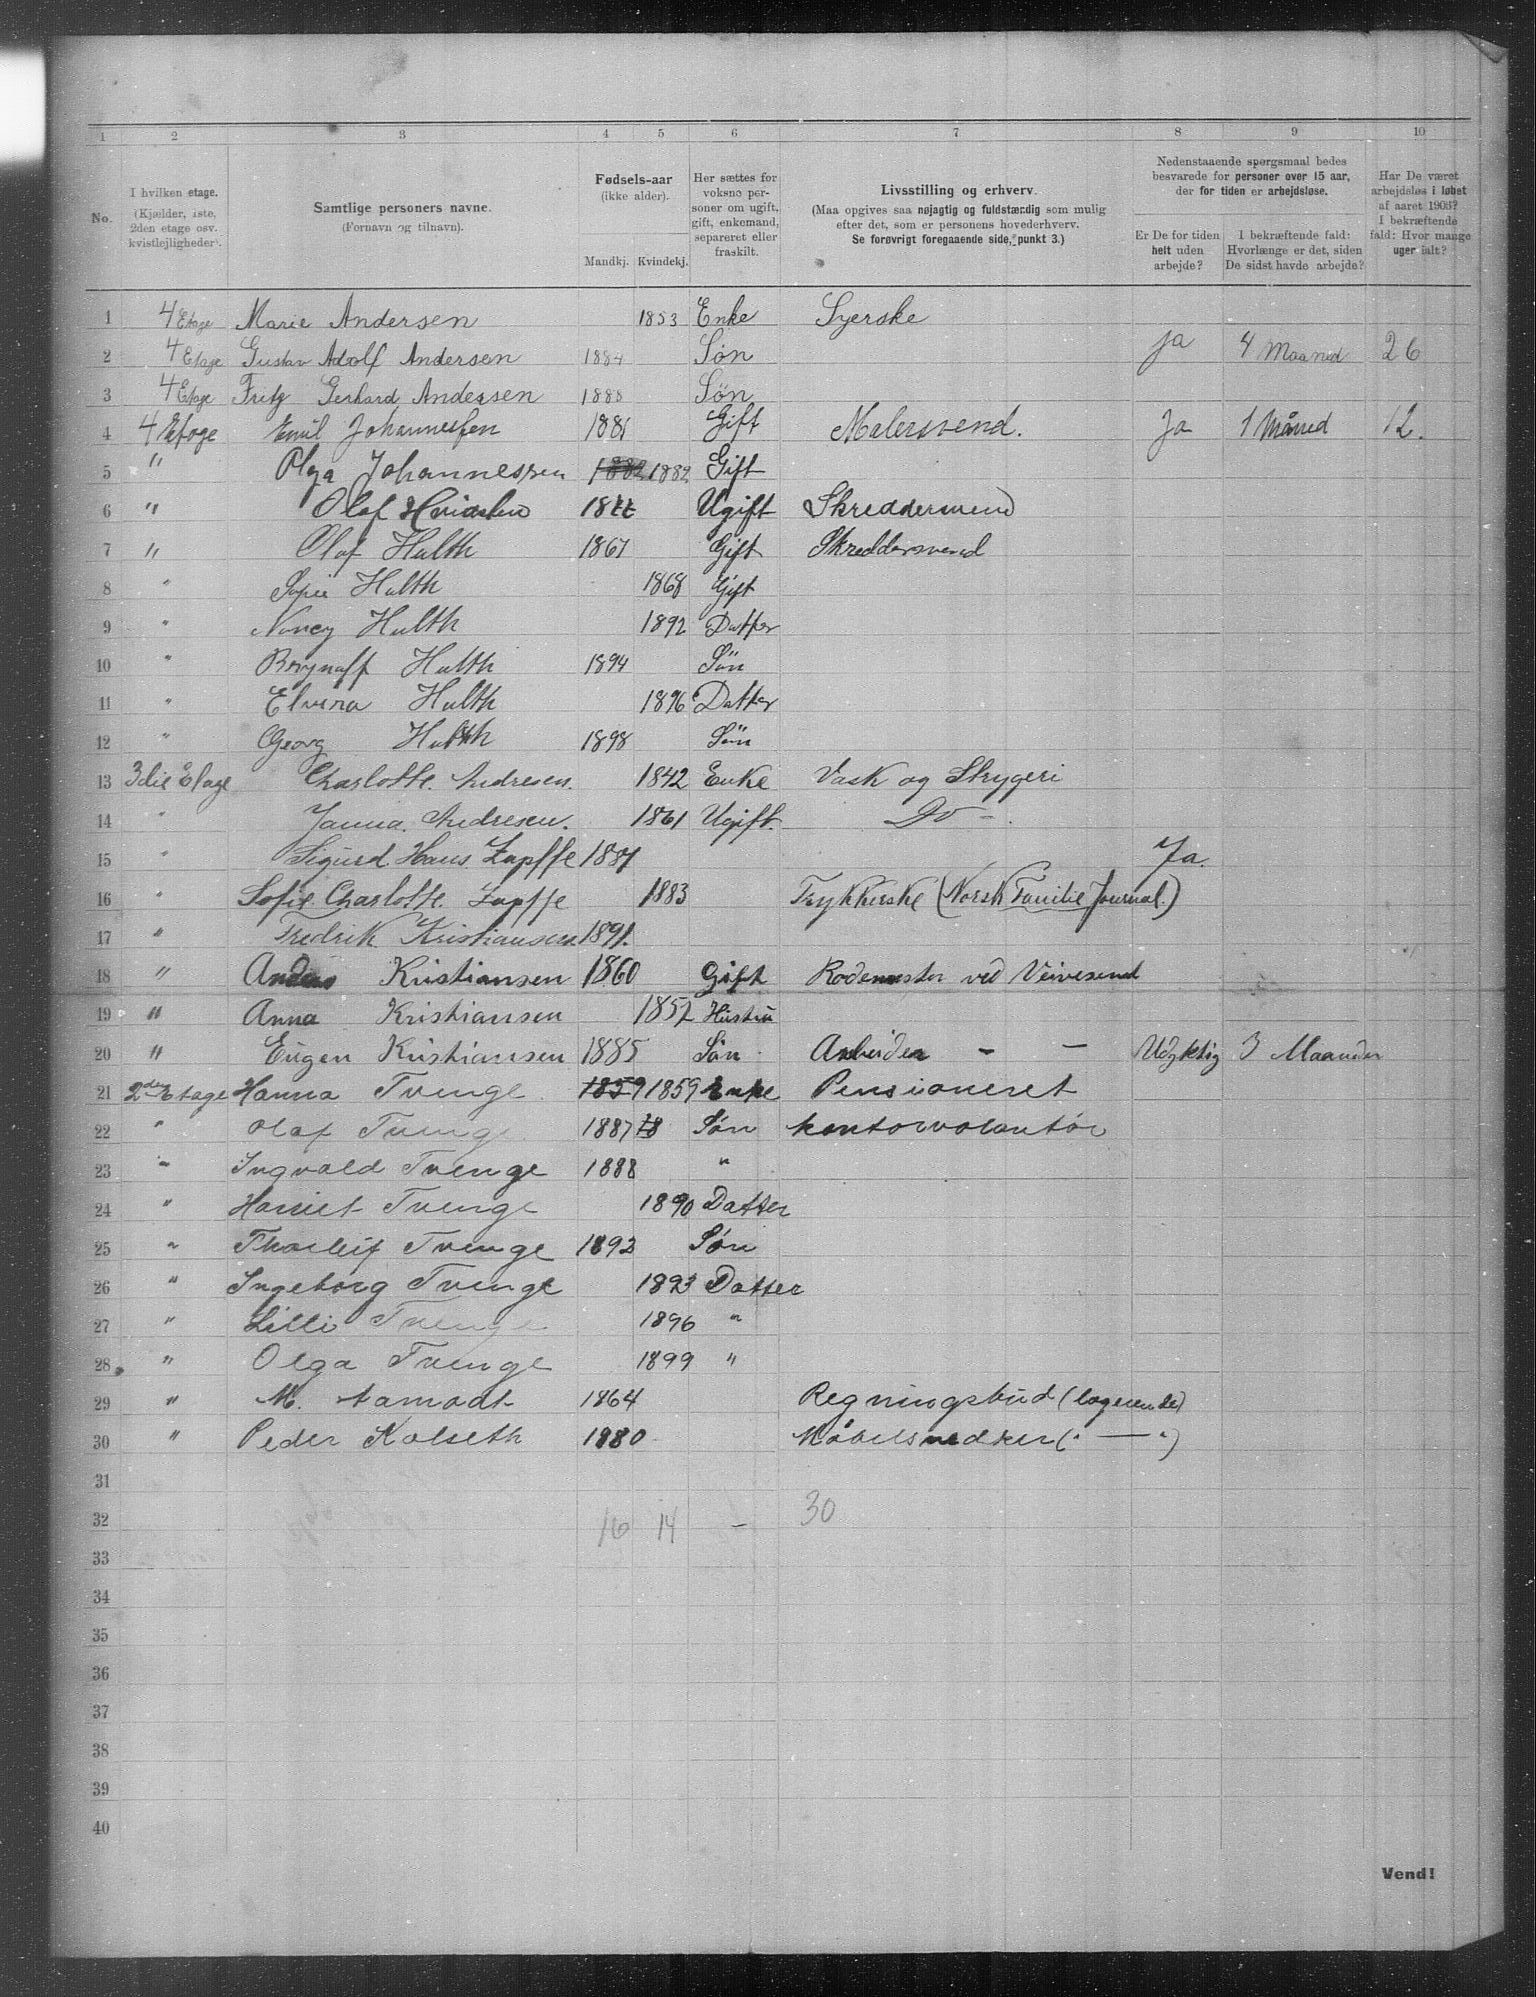 1 2 3 4 5 6 7 8 9 10
No.
I hvilken etage.
(Kjælder, 1ste,
2den etage osv.
kvistlejligheder).
Samtlige personers navne.
(Fornavn og tilnavn).
Fødsels-aar
(ikke alder).
Mandkj. Kvindekj.
Her sættes for
voksne per-
soner om ugift,
gift, enkemand,
separeret eller
fraskilt.
Livsstilling og erhverv.
(Maa opgives saa nøjagtig og fuldstændig som mulig
efter det, som er personens hovederhverv.
Se forøvrigt foregaaende side, punkt 3.)
Nedenstaaende spørgsmaal bedes
besvarede for personer over 15 aar,
der for tiden er arbejdsløse.
Er De for tiden
helt uden
arbejde?
I bekræftende fald:
Hvorlænge er det, siden
De sidst havde arbejde?
Har De været
arbejdsløs i løbet
af aaret 1903?
I bekræftende
fald: Hvor mange
uger ialt?
1 4 Etage Marie Andersen 1853 Enke Syerske
2 4 Etage Gustav Adolf Andersen 1884 Søn ja 4 Maaned 26
3 4 Etage Fritz Gerhard Andersen 1888 Søn
4 4 Etage Emil Johannessen 1881 Gift Malersvend. Ja 1 Måned 12.
5 " Olga Johannessen 1882 1882 Gift
6 " Olaf 18 Ugift Skreddersvend
7 " Olaf Hulth 1867 Gift Skreddersvend
8 " Sofie Hulth 1868 Gift
9 " Nancy Hulth 1892 Datter
10 " Hulth 1894 Søn
11 " Elvira Hulth 1896 Datter
12 " Georg Hulth 1898 Søn
13 3die Etage Charlotte Andresen. 1842 Enke Vask og Strygeri
14 " Janna. Andresen. 1861 Ugift. Do -
15 " Sigurd Hans Zapffe 1881 Ja.
16 " Sofie Charlotte Zapffe 1883 Trykkerske (Norsk Familie Journal.)
17 " Fredrik Kristiansen 1891.
18 " Anders Kristiansen 1860 Gift Rodemester ved Veivesend
19 " Anna Kristiansen 1857 Hustru
20 " Eugen Kristiansen 1885 Søn Arbeider - - Udyktig 3 Maaneder
21 2den Etage Hanna Tvenge 1859 1859 Enke Pensioneret
22 " Olaf Tvenge 1887 18 Søn kontorvolantør
23 " Ingvald Tvenge 1888 "
24 " Harriet Tvenge 1890 Datter
25 " Thorleif Tvenge 1892 Søn
26 " Ingeborg Tvenge 1893 Datter
27 " Lilli Tvenge 1896 "
28 " Olga Tvenge 1899 "
29 " M. Aamodt 1864 Regningsbud (logerende)
30 " Peder Kolseth 1880 Møbelsnedker (" — ")
31
32 16 14 – 30
33
34
35
36
37
38
39
40
Vend!